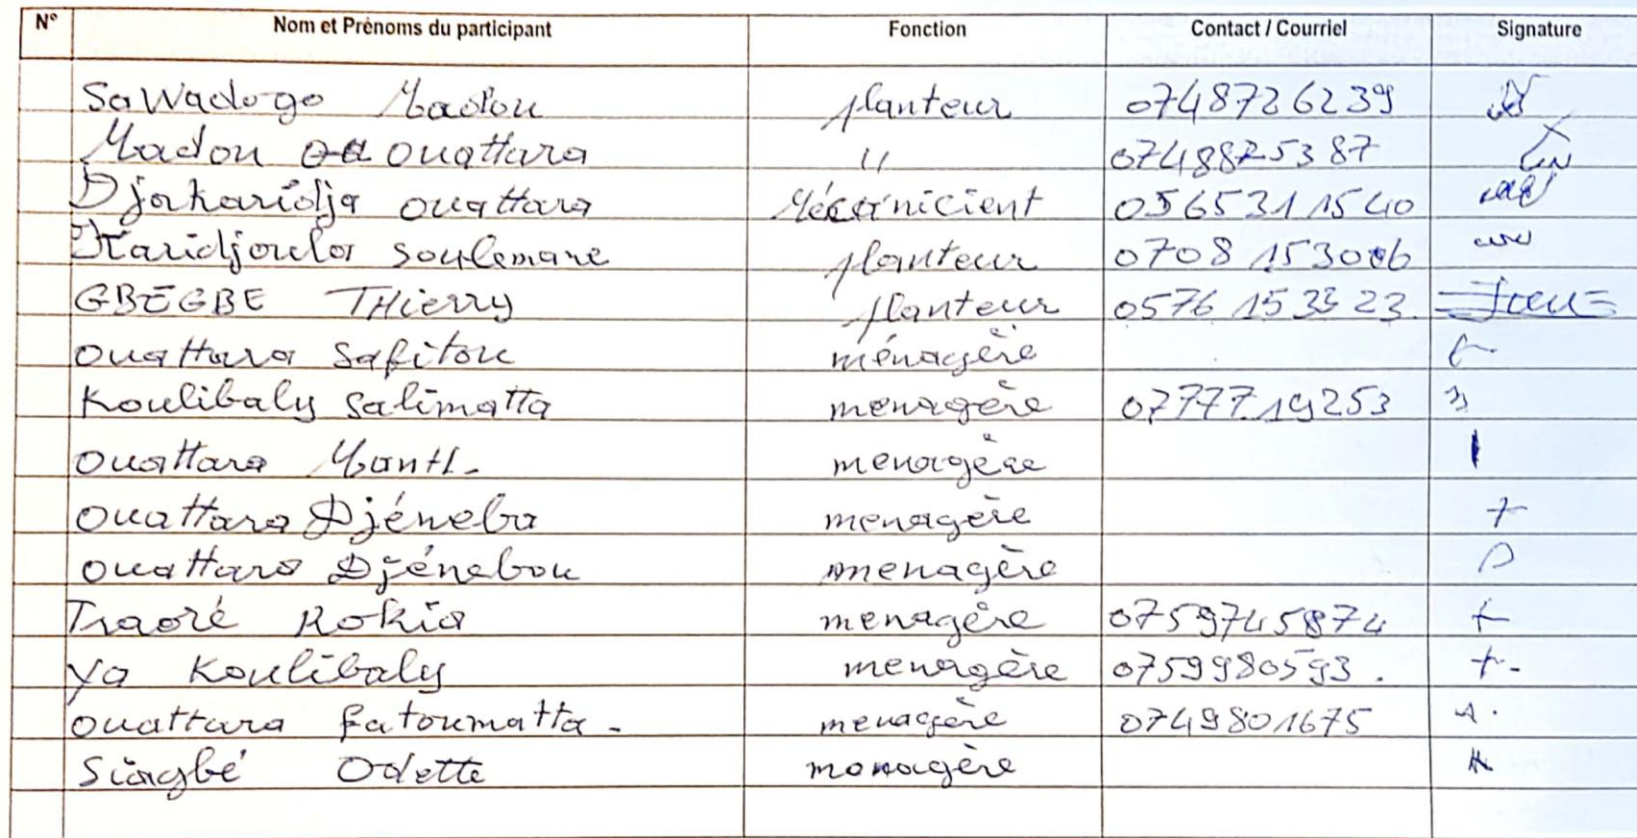 N° Nom et Prénoms du participant Fonction Contact / Courriel Signature
Sawadogo Madou planteur 0748726239
Madou ouattara " 0748825387
Djakaridja ouattara Mécanicient 0565311540
Karidjoula Soulemane planteur 0708153006
GBEGBE THierry planteur 0576153323
ouattara Safitou ménagère
Koulibaly Salimatta menagère 0777719253
ouattara menagère
ouattara Djéneba menagère
ouattara Djénebou menagère
Traoré Rokia menagère 0759745874
ya Koulibaly menagère 0759980593.
ouattara fatoumatta - menagère 0749801675
Siagbé Odette monagère